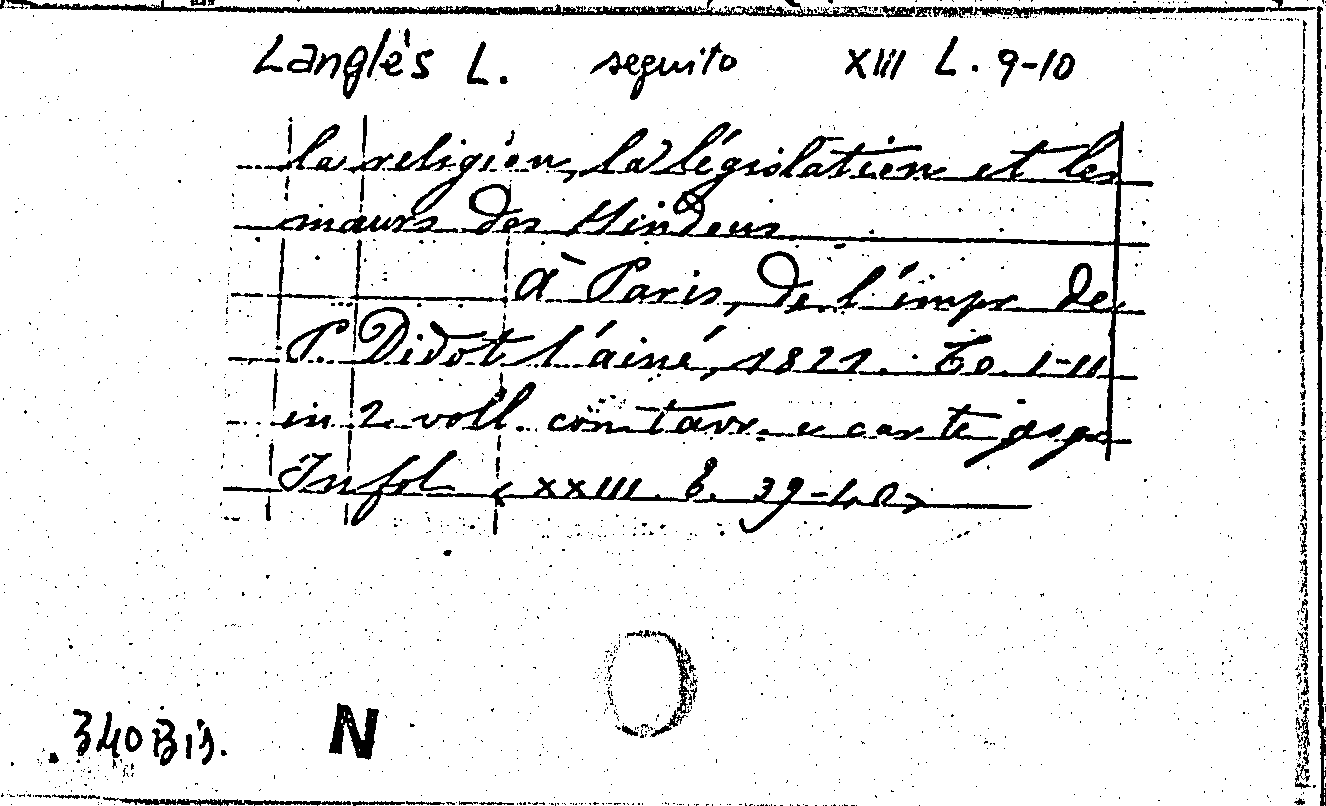 Langlès L. seguito XIII L. 9-10
la religion, la législation et les
mœurs des Hindous
à Paris, de l'impr de
P. Didot l'ainé, 1821. To. I-II
in 2 voll. con tavv. e carte geogr
In fol (XXIII. 6. 39-40)
340 Bis. N